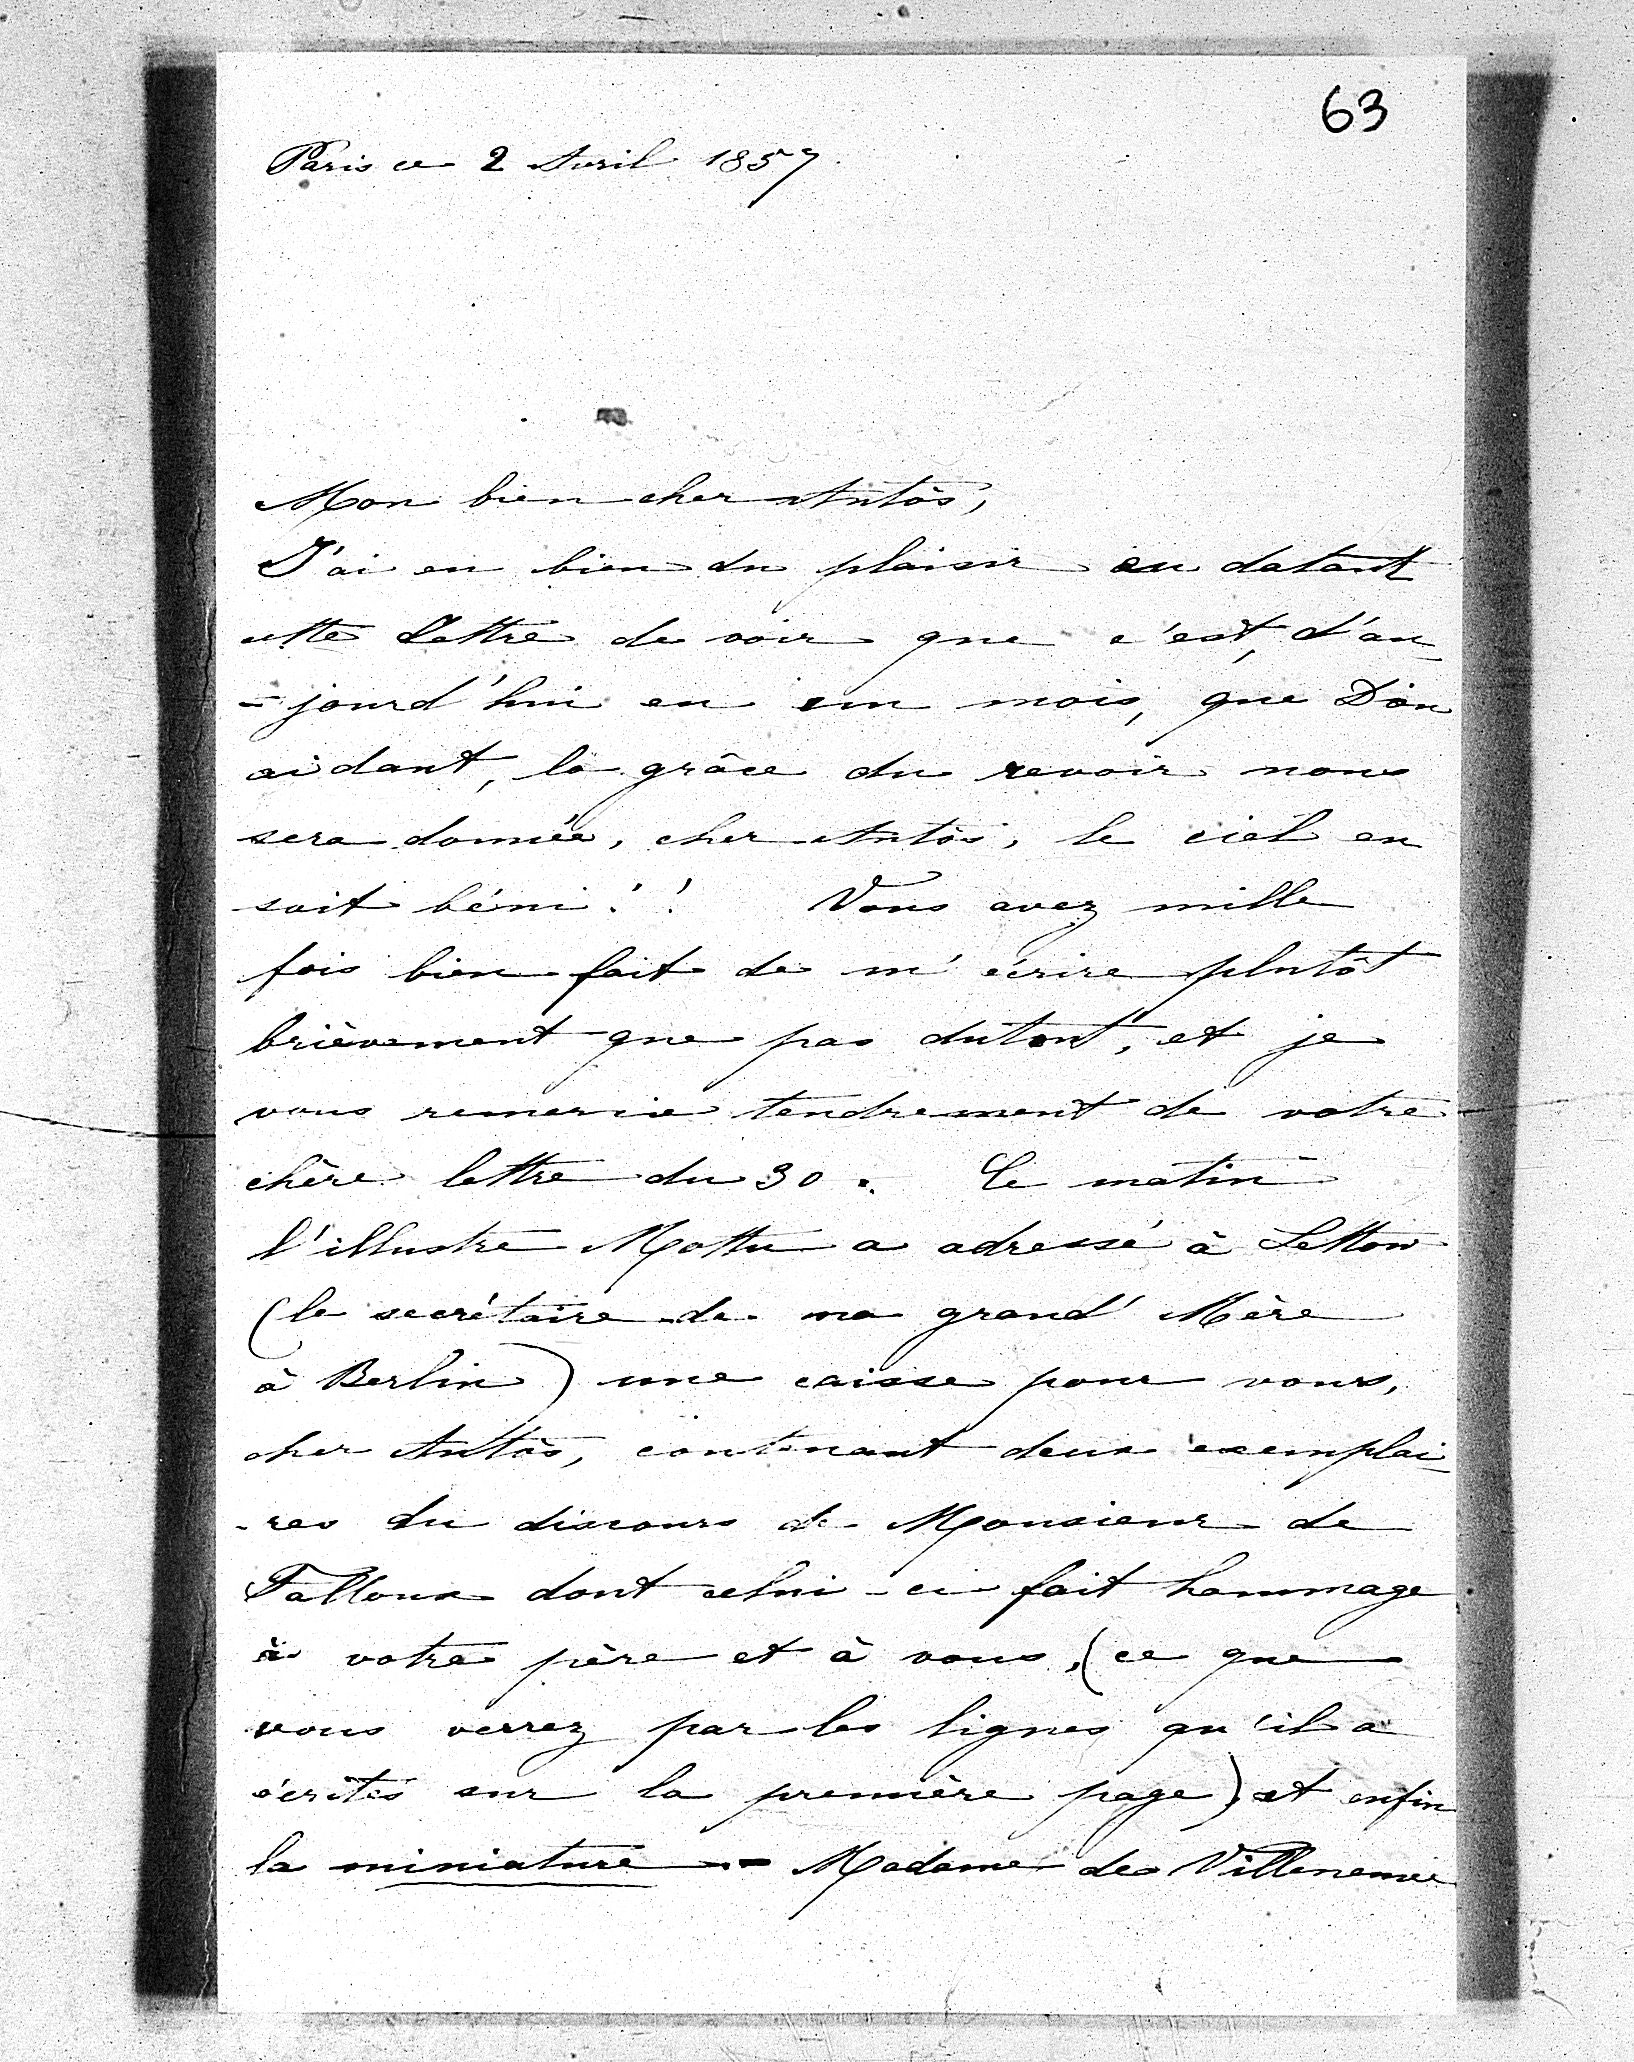 63
Paris ce 2 Avril 1857.
Mon bien cher Antós,
J'ai eu bien du plaisir en datant
cette lettre de voir que c'est, d'au-
-jourd'hui en un mois, que Dieu
aidant, la grâce du revoir nous
sera donnée, cher Antós, le ciel en
soit béni!! Vous avez mille
fois bien fait de m'écrire plutôt
brièvement que pas dutout, et je
vous remercie tendrement de votre
chère lettre du 30. Ce matin
l'illustre Mottu a adressé à Letton
(le secrétaire de ma grand'Mère
à Berlin) une caisse pour vous,
cher Antós, contenant deux exemplai-
-res du discours de Monsieur de
Falloux dont celui-ci fait hommage
à votre père et à vous, (ce que
vous verrez par les lignes qu'il a
écrites sur la première page) et enfin
la miniature -- Madame de Villeneuve